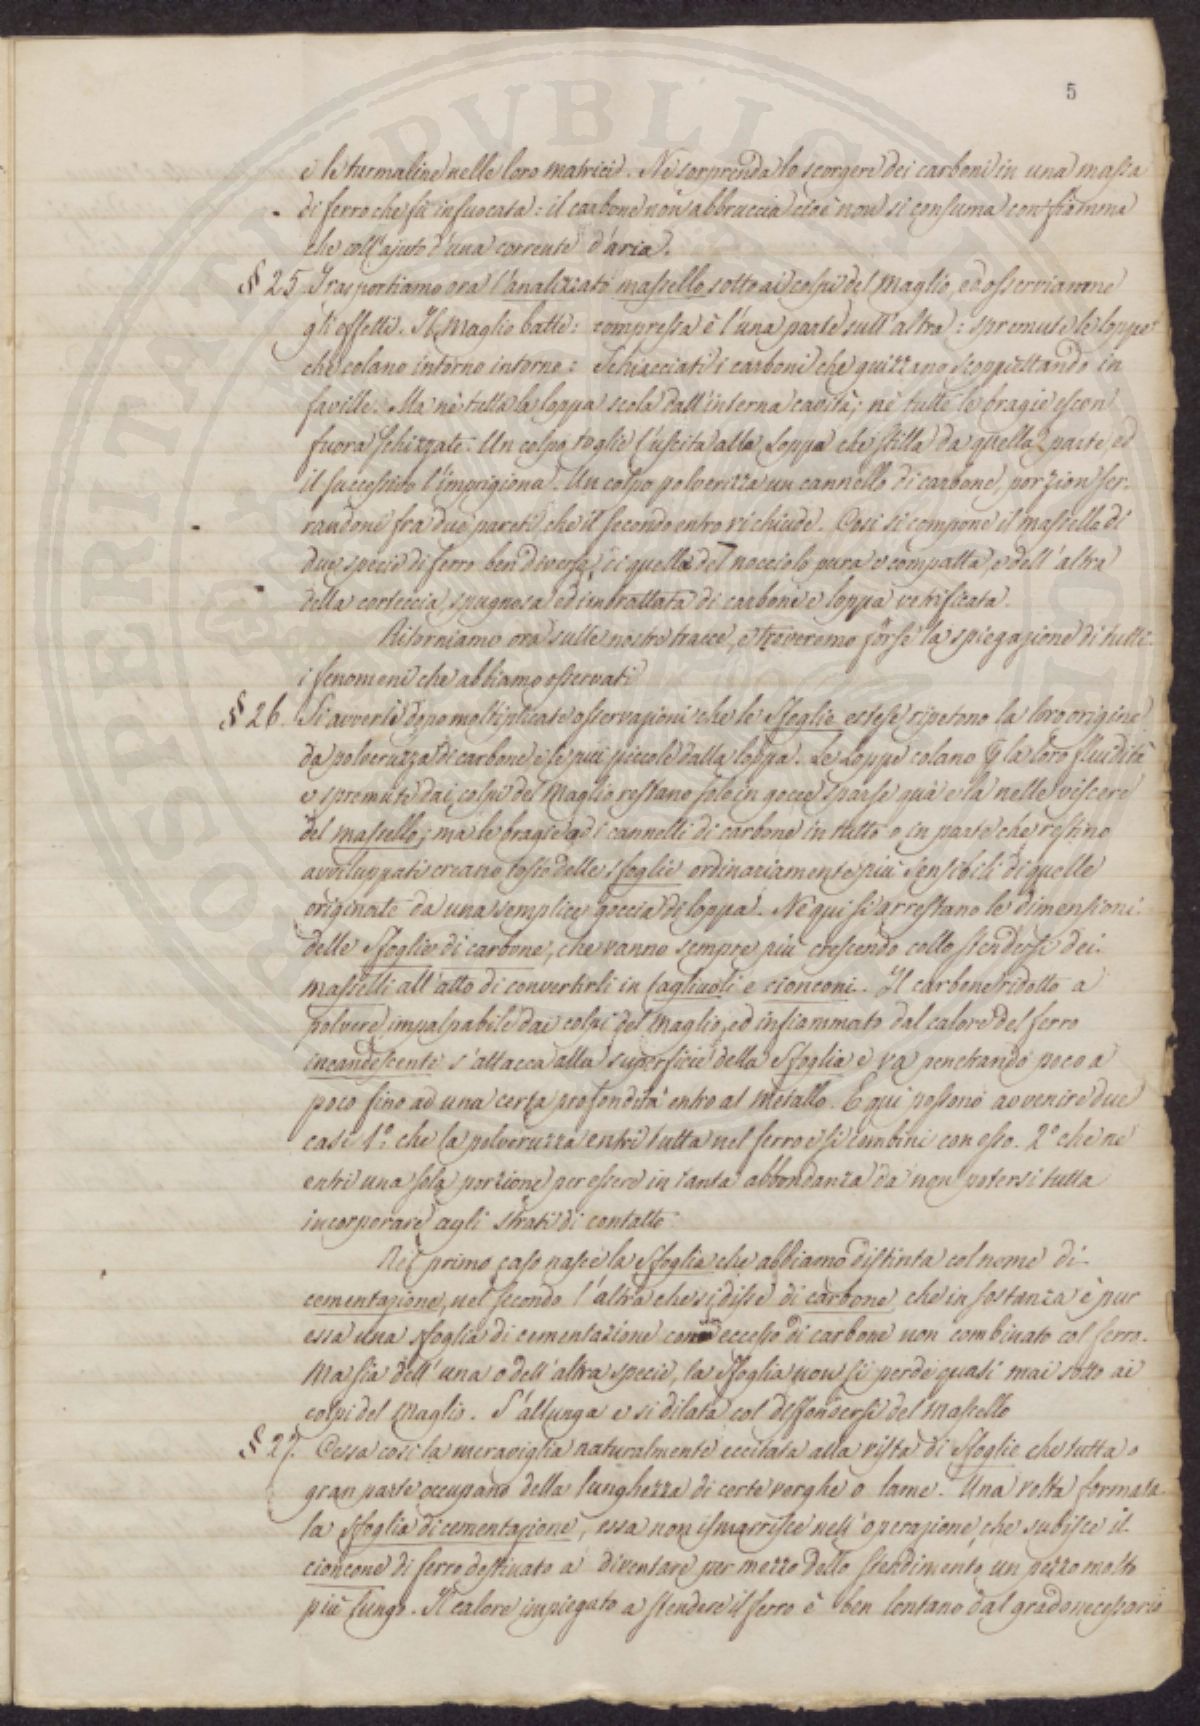 5
e le turmaline nelle loro matrici. Nè sorprenda lo scorgere dei carboni in una massa
di ferro che fù infuocata: il carbone non abbruccia cioè non si consuma con fiamma
che coll'ajuto d'una corrente d'aria.
§ 25 Trasportiamo ora l'analizzato massello sotto ai colpi del Maglio, ed osserviamone
gli effetti. Il Maglio batte: compressa è l'una parte sull'altra: spremute le loppe
che colano intorno intorno: Schiacciati i carboni che guizzano scoppiettando in
faville. Ma nè tutta la loppa scola dall'interna cavità; nè tutte le bragie escon
fuora schizzate. Un colpo toglie l'uscita alla Loppa che stilla da quella parte, ed
il successivo l'imprigiona. Un colpo polverizza un cannello di carbone, porzion ser-
randone fra due pareti che il secondo entro richiude. Così si compone il massello di
due specie di ferro ben diverse, di quella del nocciolo pura e compatta, e dell'altra
della corteccia spugnosa ed imbrattata di carbone e loppa vetrificata.
Ritorniamo ora sulle nostre tracce, e troveremo forse la spiegazione di tutti
i fenomeni che abbiamo osservati
§ 26. Si avverte dopo moltiplicate osservazioni che le Sfoglie estese ripetono la loro origine
da polveruzza di carbone e le più piccole dalla loppa. Le Loppe colano p la loro fluidità
e spremute dai colpi del Maglio restano solo in gocce sparse quà e là nelle viscere
del massello; ma le bragie ed i cannelli di carbone in tutto o in parte che restino
avviluppati creano tosto delle sfoglie ordinariamente più sensibili di quelle
originate da una semplice goccia di loppa. Nè qui si arrestano le dimensioni
delle Sfoglie di carbone, che vanno sempre più crescendo collo stendersi dei
masselli all'atto di convertirli in tagliuoli e cionconi. Il carbone ridotto a
polvere impalpabile dai colpi del Maglio, ed infiammato dal calore del ferro
incandescente s'attacca alla superficie della Sfoglia e va penetrando poco a
poco fino ad una certa profondità entro al Metallo. E qui possono avvenire due
casi 1.° che la polveruzza entri tutta nel ferro e si combini con esso. 2° che ne
entri una sola porzione per essere in tanta abbondanza da non potersi tutta
incorporare agli strati di contatto.
Nel primo caso nasce la Sfoglia che abbiamo distinta col nome di
cementazione, nel secondo l'altra che si disse di carbone che in sostanza è pur
essa una sfoglia di cementazione con eccesso di carbone non combinato col ferro.
Ma sia dell'una o dell'altra specie, la Sfoglia non si perde quasi mai sotto ai
colpi del Maglio. S'allunga e si dilata col diffondersi del Massello
§ 27. Cessa così la meraviglia naturalmente eccitata alla vista di Sfoglie che tutta o
gran parte occupano della lunghezza di certe verghe o lame. Una volta formata
la Sfoglia di cementazione, essa non ismarrisce nell'operazione, che subisce il
cioncone di ferro destinato a diventare per mezzo dello stendimento un pezzo molto
più lungo. Il calore impiegato a stendere il ferro è ben lontano dal grado necessario